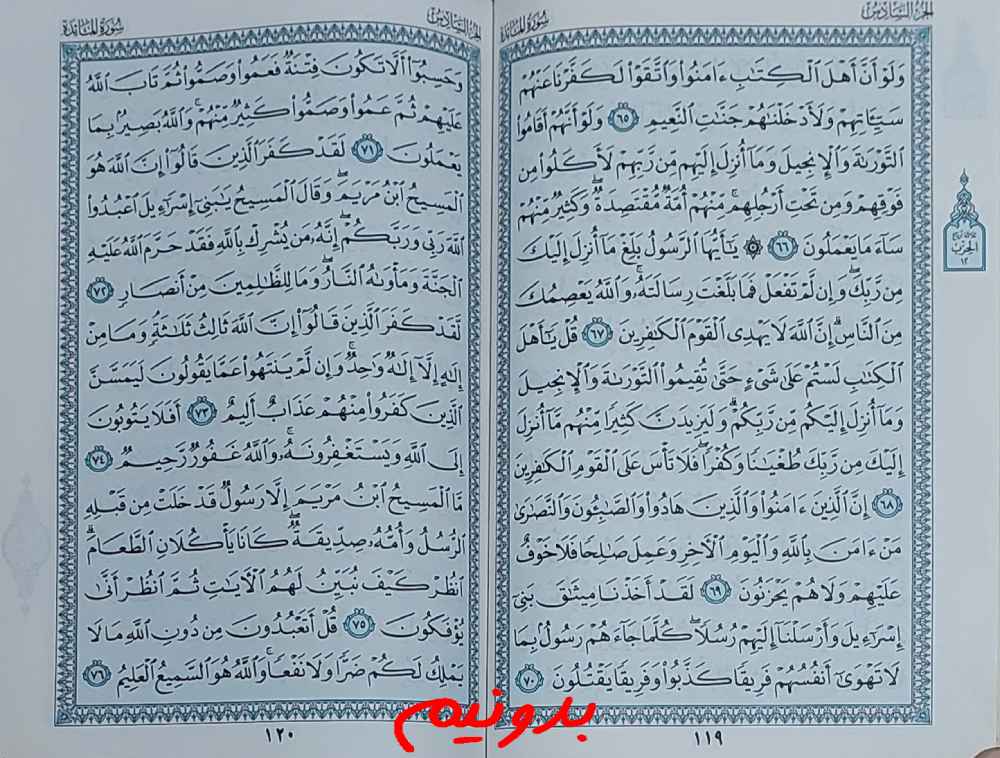 الجزء السادس
سورة المائدة
وَلَوْ أَنَّ أَهْلَ ٱلْكِتَٰبِ ءَامَنُوا۟ وَٱتَّقَوْا۟ لَكَفَّرْنَا عَنْهُمْ
سَيِّـَٔاتِهِمْ وَلَأَدْخَلْنَٰهُمْ جَنَّٰتِ ٱلنَّعِيمِ ٦٥ وَلَوْ أَنَّهُمْ أَقَامُوا۟
ٱلتَّوْرَىٰةَ وَٱلْإِنجِيلَ وَمَآ أُنزِلَ إِلَيْهِم مِّن رَّبِّهِمْ لَأَكَلُوا۟ مِن
فَوْقِهِمْ وَمِن تَحْتِ أَرْجُلِهِم ۚ مِّنْهُمْ أُمَّةٌ مُّقْتَصِدَةٌ ۖ وَكَثِيرٌ مِّنْهُمْ
سَآءَ مَا يَعْمَلُونَ ٦٦ ۞ يَٰٓأَيُّهَا ٱلرَّسُولُ بَلِّغْ مَآ أُنزِلَ إِلَيْكَ
مِن رَّبِّكَ ۖ وَإِن لَّمْ تَفْعَلْ فَمَا بَلَّغْتَ رِسَالَتَهُۥ ۚ وَٱللَّهُ يَعْصِمُكَ
مِنَ ٱلنَّاسِ ۗ إِنَّ ٱللَّهَ لَا يَهْدِى ٱلْقَوْمَ ٱلْكَٰفِرِينَ ٦٧ قُلْ يَٰٓأَهْلَ
ٱلْكِتَٰبِ لَسْتُمْ عَلَىٰ شَىْءٍ حَتَّىٰ تُقِيمُوا۟ ٱلتَّوْرَىٰةَ وَٱلْإِنجِيلَ
وَمَآ أُنزِلَ إِلَيْكُم مِّن رَّبِّكُمْ ۗ وَلَيَزِيدَنَّ كَثِيرًا مِّنْهُم مَّآ أُنزِلَ
إِلَيْكَ مِن رَّبِّكَ طُغْيَٰنًا وَكُفْرًا ۖ فَلَا تَأْسَ عَلَى ٱلْقَوْمِ ٱلْكَٰفِرِينَ
٦٨ إِنَّ ٱلَّذِينَ ءَامَنُوا۟ وَٱلَّذِينَ هَادُوا۟ وَٱلصَّٰبِـُٔونَ وَٱلنَّصَٰرَىٰ
مَنْ ءَامَنَ بِٱللَّهِ وَٱلْيَوْمِ ٱلْـَٔاخِرِ وَعَمِلَ صَٰلِحًا فَلَا خَوْفٌ
عَلَيْهِمْ وَلَا هُمْ يَحْزَنُونَ ٦٩ لَقَدْ أَخَذْنَا مِيثَٰقَ بَنِىٓ
إِسْرَٰٓءِيلَ وَأَرْسَلْنَآ إِلَيْهِمْ رُسُلًا ۖ كُلَّمَا جَآءَهُمْ رَسُولٌۢ بِمَا
لَا تَهْوَىٰٓ أَنفُسُهُمْ فَرِيقًا كَذَّبُوا۟ وَفَرِيقًا يَقْتُلُونَ ٧٠
١١٩
الحزب
١٢
الجزء السادس
سورة المائدة
وَحَسِبُوٓا۟ أَلَّا تَكُونَ فِتْنَةٌ فَعَمُوا۟ وَصَمُّوا۟ ثُمَّ تَابَ ٱللَّهُ
عَلَيْهِمْ ثُمَّ عَمُوا۟ وَصَمُّوا۟ كَثِيرٌ مِّنْهُمْ ۚ وَٱللَّهُ بَصِيرٌۢ بِمَا
يَعْمَلُونَ ٧١ لَقَدْ كَفَرَ ٱلَّذِينَ قَالُوٓا۟ إِنَّ ٱللَّهَ هُوَ
ٱلْمَسِيحُ ٱبْنُ مَرْيَمَ ۖ وَقَالَ ٱلْمَسِيحُ يَٰبَنِىٓ إِسْرَٰٓءِيلَ ٱعْبُدُوا۟
ٱللَّهَ رَبِّى وَرَبَّكُمْ ۖ إِنَّهُۥ مَن يُشْرِكْ بِٱللَّهِ فَقَدْ حَرَّمَ ٱللَّهُ عَلَيْهِ
ٱلْجَنَّةَ وَمَأْوَىٰهُ ٱلنَّارُ ۖ وَمَا لِلظَّٰلِمِينَ مِنْ أَنصَارٍ ٧٢
لَّقَدْ كَفَرَ ٱلَّذِينَ قَالُوٓا۟ إِنَّ ٱللَّهَ ثَالِثُ ثَلَٰثَةٍ ۘ وَمَا مِنْ
إِلَٰهٍ إِلَّآ إِلَٰهٌ وَٰحِدٌ ۚ وَإِن لَّمْ يَنتَهُوا۟ عَمَّا يَقُولُونَ لَيَمَسَّنَّ
ٱلَّذِينَ كَفَرُوا۟ مِنْهُمْ عَذَابٌ أَلِيمٌ ٧٣ أَفَلَا يَتُوبُونَ
إِلَى ٱللَّهِ وَيَسْتَغْفِرُونَهُۥ ۚ وَٱللَّهُ غَفُورٌ رَّحِيمٌ ٧٤
مَّا ٱلْمَسِيحُ ٱبْنُ مَرْيَمَ إِلَّا رَسُولٌ قَدْ خَلَتْ مِن قَبْلِهِ
ٱلرُّسُلُ وَأُمُّهُۥ صِدِّيقَةٌ ۖ كَانَا يَأْكُلَانِ ٱلطَّعَامَ ۗ
ٱنظُرْ كَيْفَ نُبَيِّنُ لَهُمُ ٱلْـَٔايَٰتِ ثُمَّ ٱنظُرْ أَنَّىٰ
يُؤْفَكُونَ ٧٥ قُلْ أَتَعْبُدُونَ مِن دُونِ ٱللَّهِ مَا لَا
يَمْلِكُ لَكُمْ ضَرًّا وَلَا نَفْعًا ۚ وَٱللَّهُ هُوَ ٱلسَّمِيعُ ٱلْعَلِيمُ ٧٦
١٢٠
بدونیم